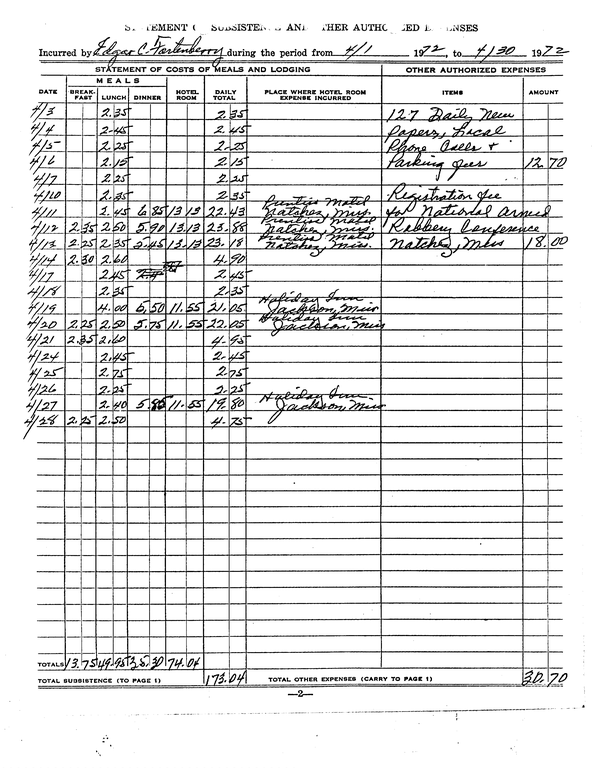 STATEMENT OF SUBSISTENCE AND OTHER AUTHORIZED EXPENSES
Incurred by Edgar C. Fortenberry during the period from 4/1 1972, to 4/30 1972
STATEMENT OF COSTS OF MEALS AND LODGING OTHER AUTHORIZED EXPENSES
MEALS
DATE BREAK-FAST LUNCH DINNER HOTEL ROOM DAILY TOTAL PLACE WHERE HOTEL ROOM EXPENSE INCURRED ITEMS AMOUNT
4/3 2.35 2.35 127 Daily New
4/4 2.45 2.45 papers, Local
4/5 2.25 2.25 Phone Calls +
4/6 2.15 2.15 Parking fees 12.70
4/7 2.25 2.25
4/10 2.35 2.35 Registration fee
4/11 2.45 6.85 13.13 22.43 Prentiss Motel Natchez, Miss. for National Armed
4/12 2.35 2.50 5.90 13.13 23.88 Prentiss Motel Natchez, Miss. Robbery Conference
4/13 2.25 2.35 5.45 13.13 23.18 Prentiss Motel Natchez, Miss. Natchez, Miss 18.00
4/14 2.30 2.60 4.90
4/17 2.45 2.45
4/18 2.35 2.35
4/19 4.00 5.50 11.55 21.05 Holiday Inn Jackson, Miss
4/20 2.25 2.50 5.75 11.55 22.05 Holiday Inn Jackson, Miss
4/21 2.35 2.60 4.95
4/24 2.45 2.45
4/25 2.75 2.75
4/26 2.25 2.25
4/27 2.40 5.85 11.55 19.80 Holiday Inn Jackson, Miss
4/28 2.25 2.50 4.75
TOTALS 13.75 49.95 35.30 74.04
TOTAL SUBSISTENCE (TO PAGE 1) 173.04 TOTAL OTHER EXPENSES (CARRY TO PAGE 1) 30.70
—2—